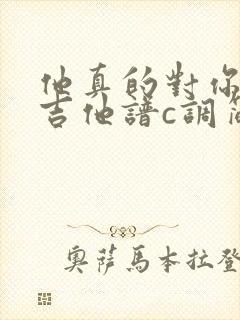 他真的對你
吉他譜c調簡
奧薩馬本拉登